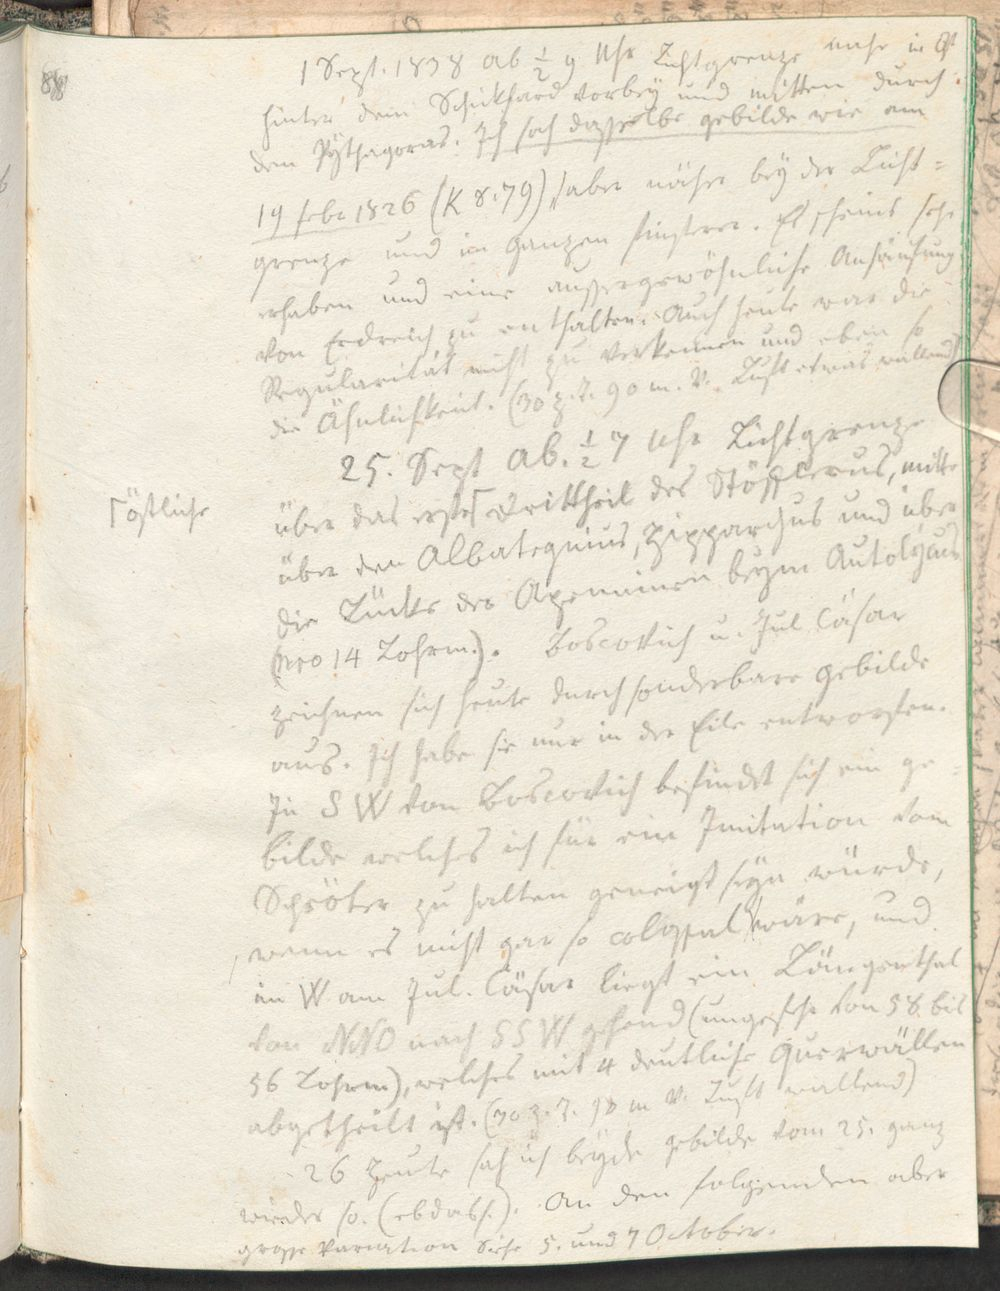 88
1 Sept. 1838 ab ½ 9 Uhr Lichtgrenze nahe in Ost
hinter dem Schikhard vorbey und mitten durch
den Pythagoras. Ich sah dasselbe gebilde wie am
19 febr 1826 (K 8.79), aber näher bey der Licht=
grenze und im Ganzen finsterer. Es scheint sehr
erhaben und eine aussergewöhnliche Anhäufung
von Erdreich zu enthalten. Auch heute war die
Regularität nicht zu verkennen und eben so
die Ähnlichkeit. (30 z. F. 90 m. V. Luft etwas wallend)
25. Sept ab. ½ 7 Uhr Lichtgrenze
über das erste ⌈ Drittheil des Stöfflerus, mitte
⌈ östliche
über den Albategnius, Hipparchus und über
die Lücke der Apenninen beym Autolycus
(Nro 14 Lohrm.). Boscovich u. Jul. Cäsar
zeichnen sich heute durch sonderbare gebilde
aus. Ich habe sie nur in der Eile entworfen.
In SW von Boscovich befindet sich ein ge=
bilde welches ich für ein Imitation vom
Schröter zu halten geneigt seyn würde,
wenn es nicht gar so colossal wäre, und
im W am Jul. Cäsar liegt ein Längenthal
von NNO nach SSW gehend (ungefehr von 58 bis
56 Lohrm), welches mit 4 deutliche Querwällen
abgetheilt ist. (30 z. F. 90 m V. Luft wallend)
26 Heute sah ich beyde gebilde vom 25. ganz
wieder so. (ebdass.). An den folgenden aber
grosse Variation Siehe 5. und 7 October.